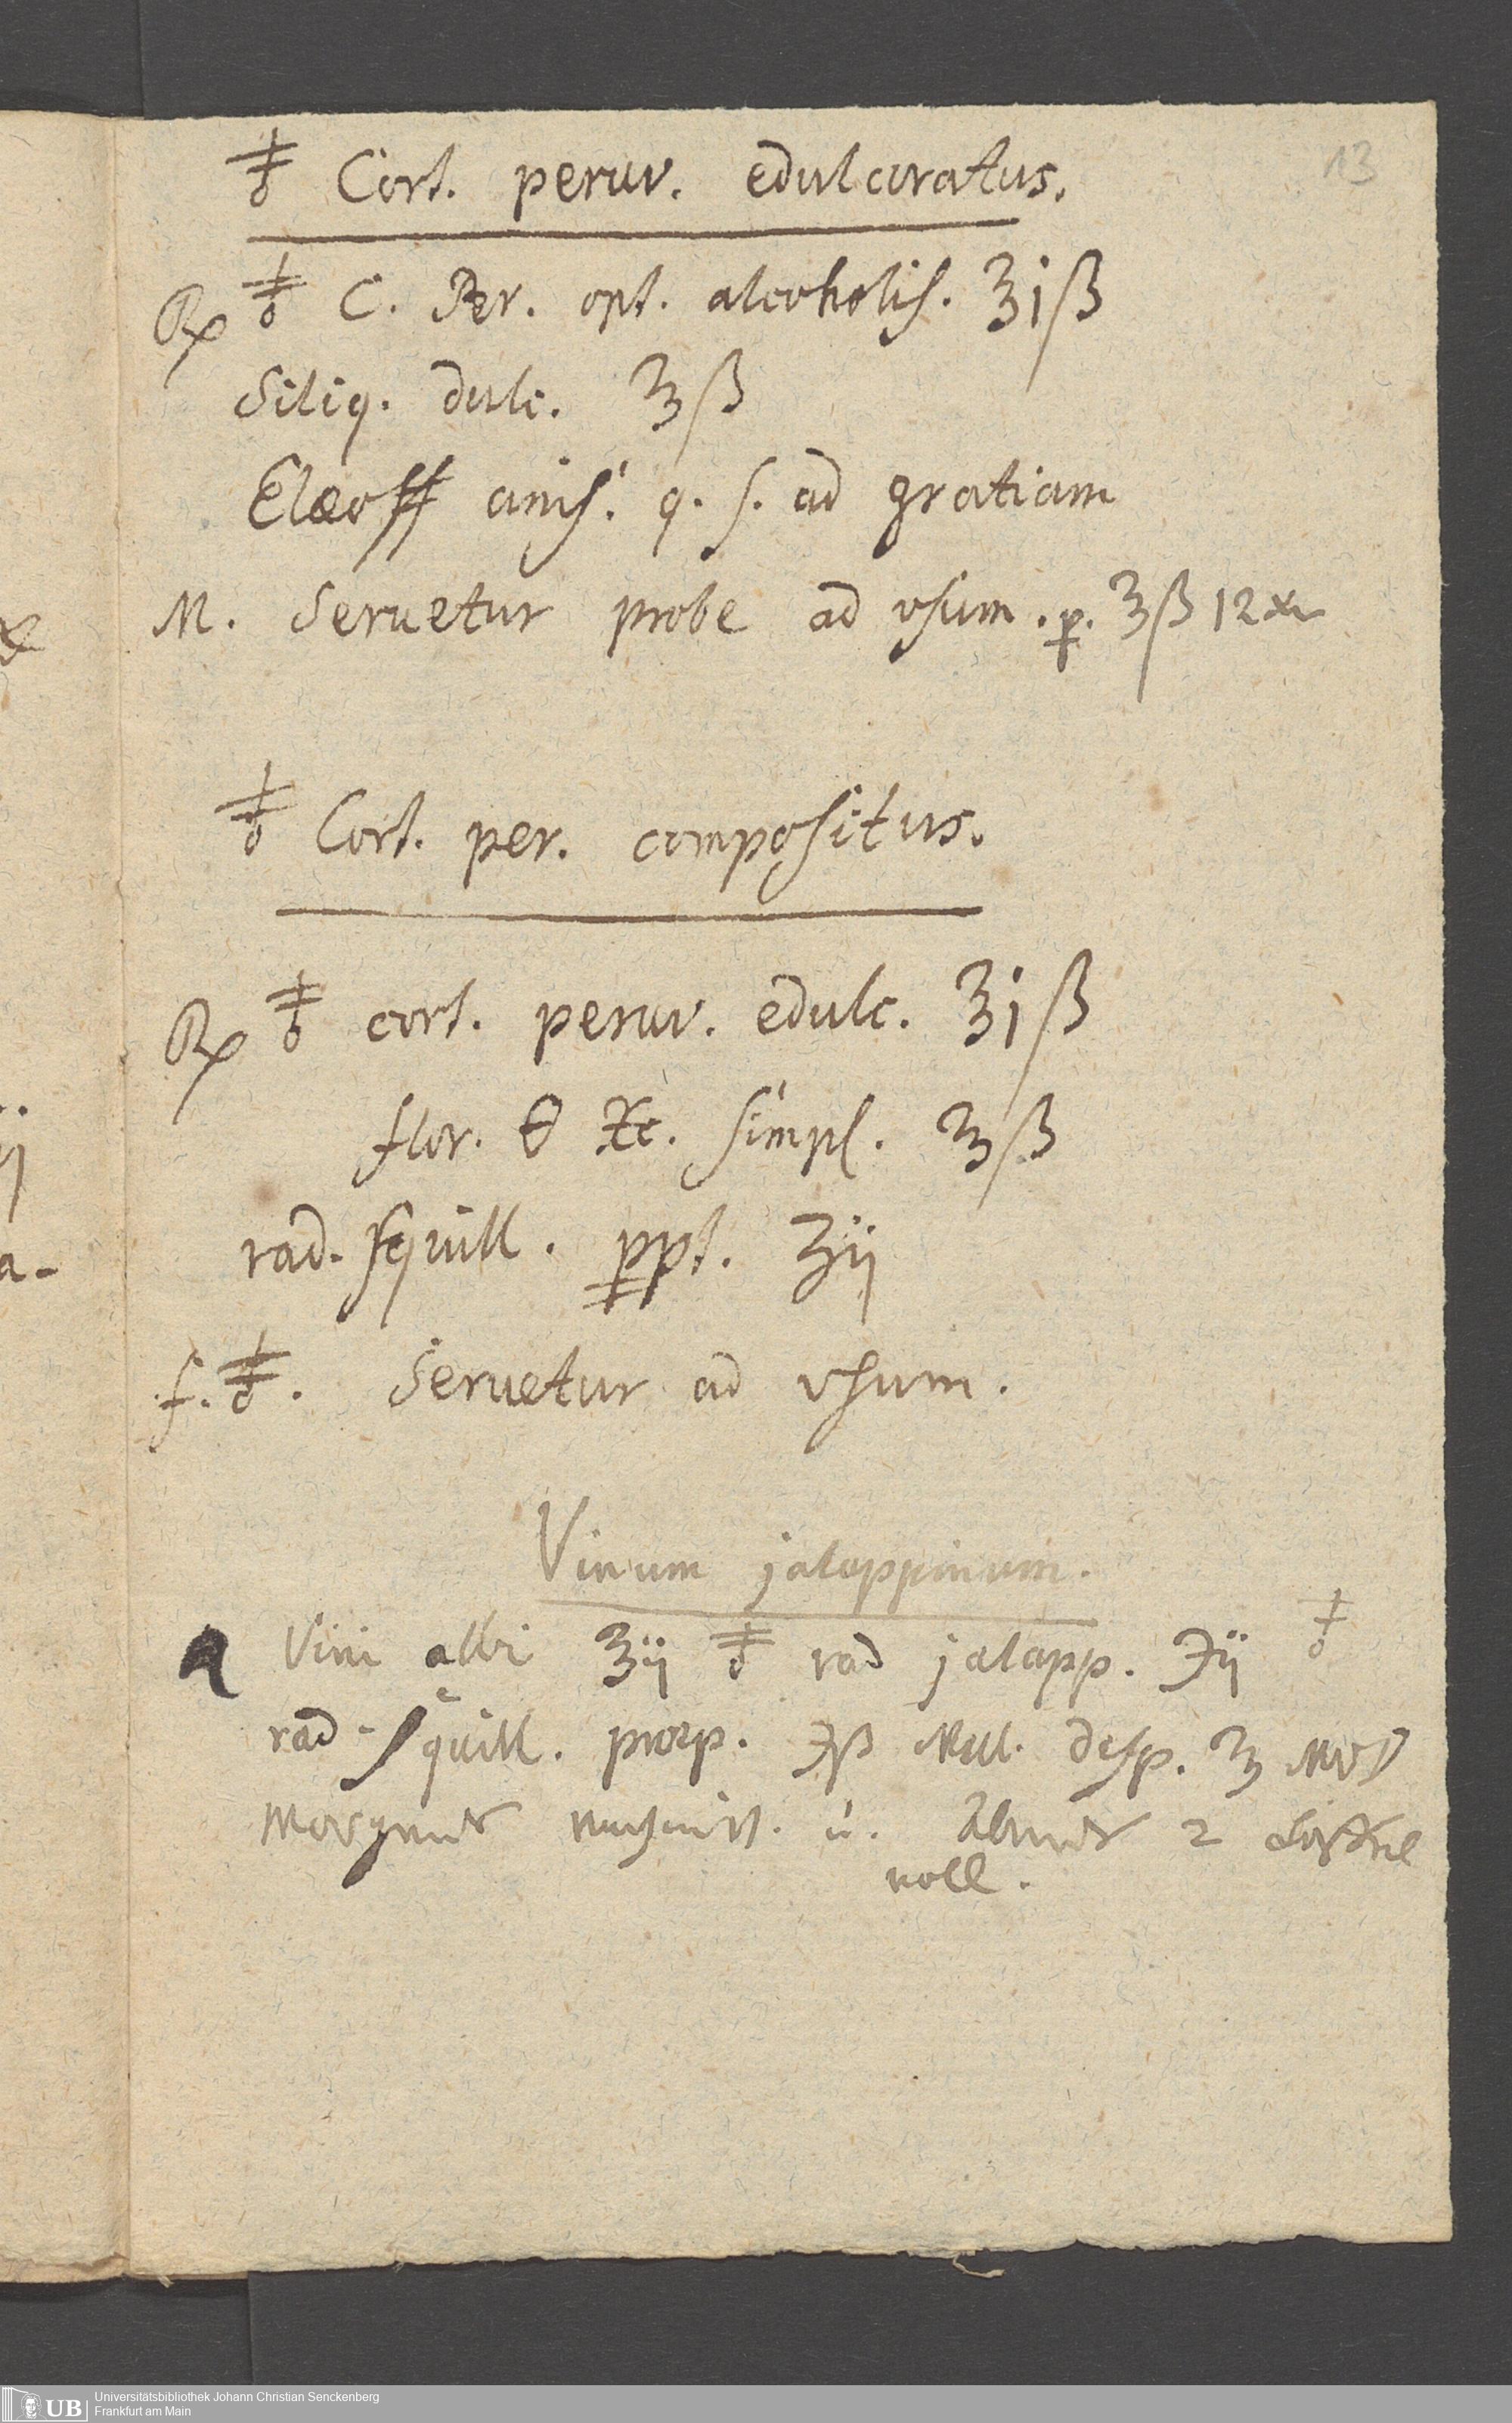 13
♁ Cort. peruv. edulcoratus.
℞ ♁ C. Per. opt. alcoholis. ℥jß
Siliq. dulc. ʒß
Elæoss anis. q. s. ad gratiam
M. Seruetur probe ad vsum. p. ʒß 12 xr
♁ Cort. per. compositus.
℞ ♁ cort. peruv. edulc. ℥jß
flor. simpl. ʒß
rad. squill. ppt. ʒij
f. ♁. Seruetur ad vsum.
Vinum jalappinum.
Vini albi ℥ij ♁ rad jalapp. ℈ij ♁
rad. squill. praep. ℈ß Mell. desp. ʒ MDS
Morgends u. Abends 2 Löffel
voll.
Universitätsbibliothek Johann Christian Senckenberg
Frankfurt am Main
UB